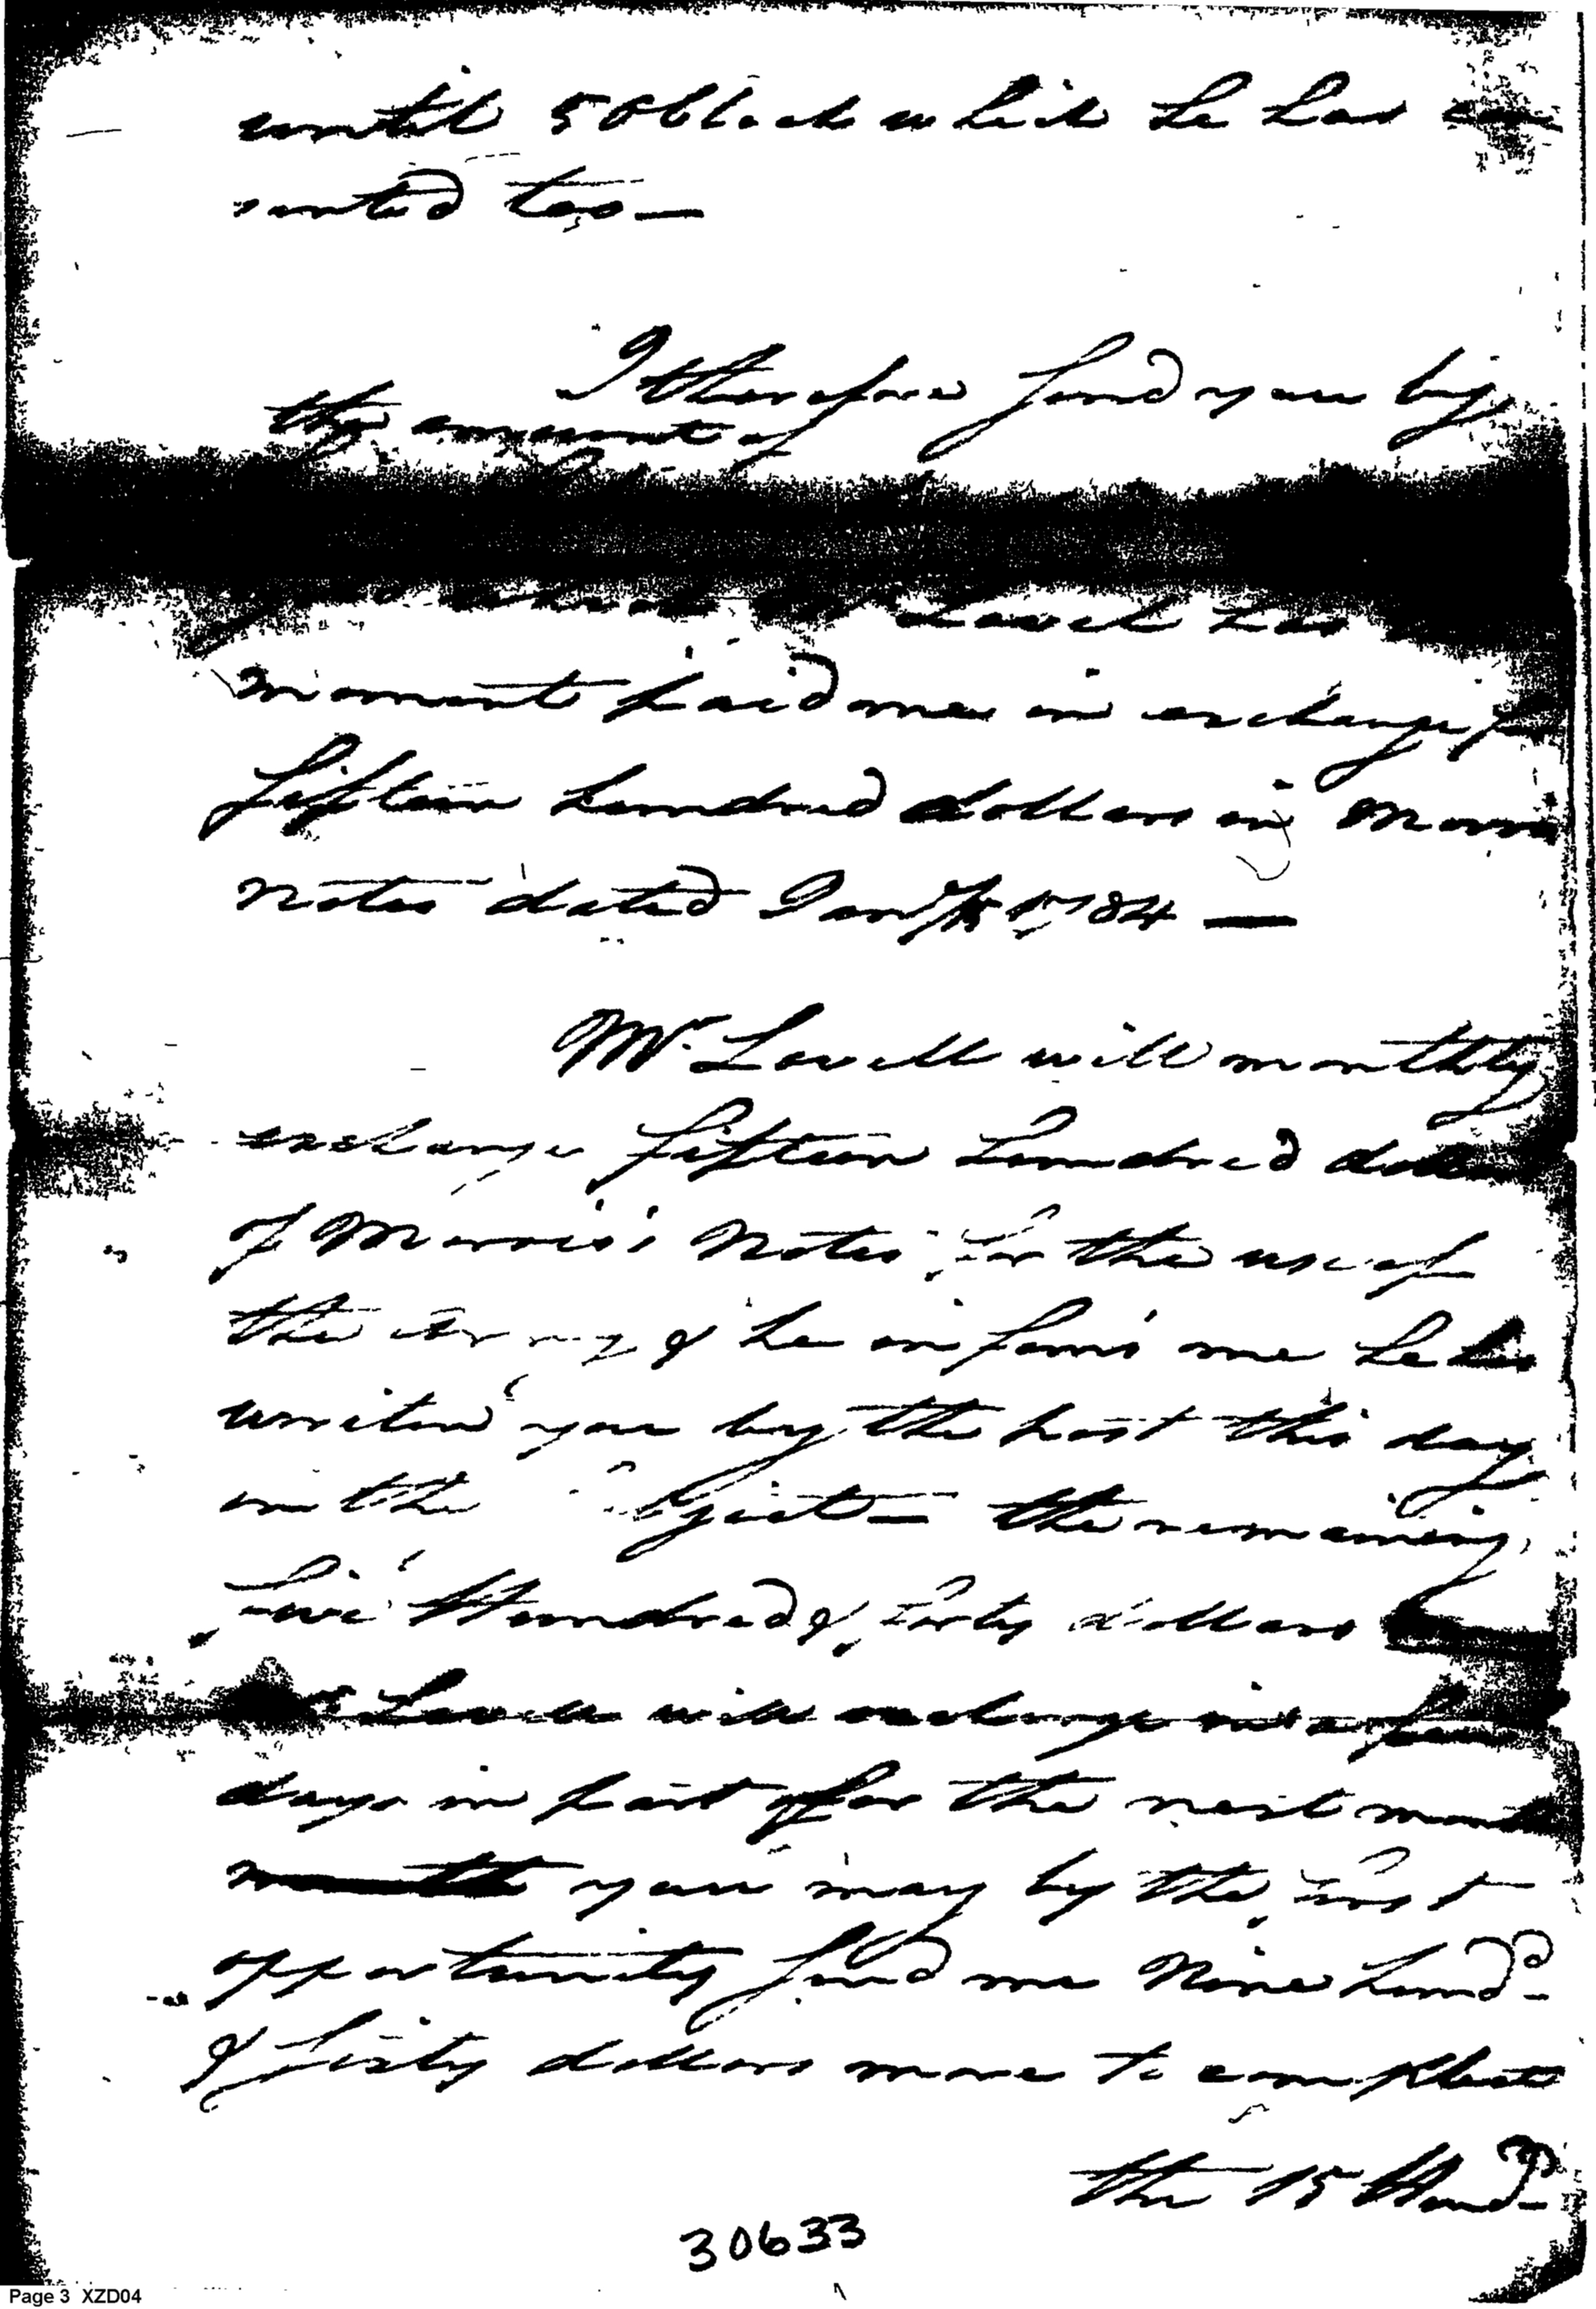 until 5 oClock which he has con
sented too —
I therefore send you by
the amount of
Lovell has
moment paid me in exchange for
fifteen hundred dollars in Morris
Notes dated Jany 15 1784 —
Mr. Lovell will monthly
exchange fifteen hundred dollars
of Morris's Notes for the use of
the Army & he informs me he has
written you by the post this day
on the Subject — the remaining
five Hundred & forty dollars
Lovell will exchange in a few
days in part for the next month
you may by the first
opportunity send me Nine Hundd
& Sixty dollars more to compleat
the 15 Hundd
30633
Page 3 XZD04